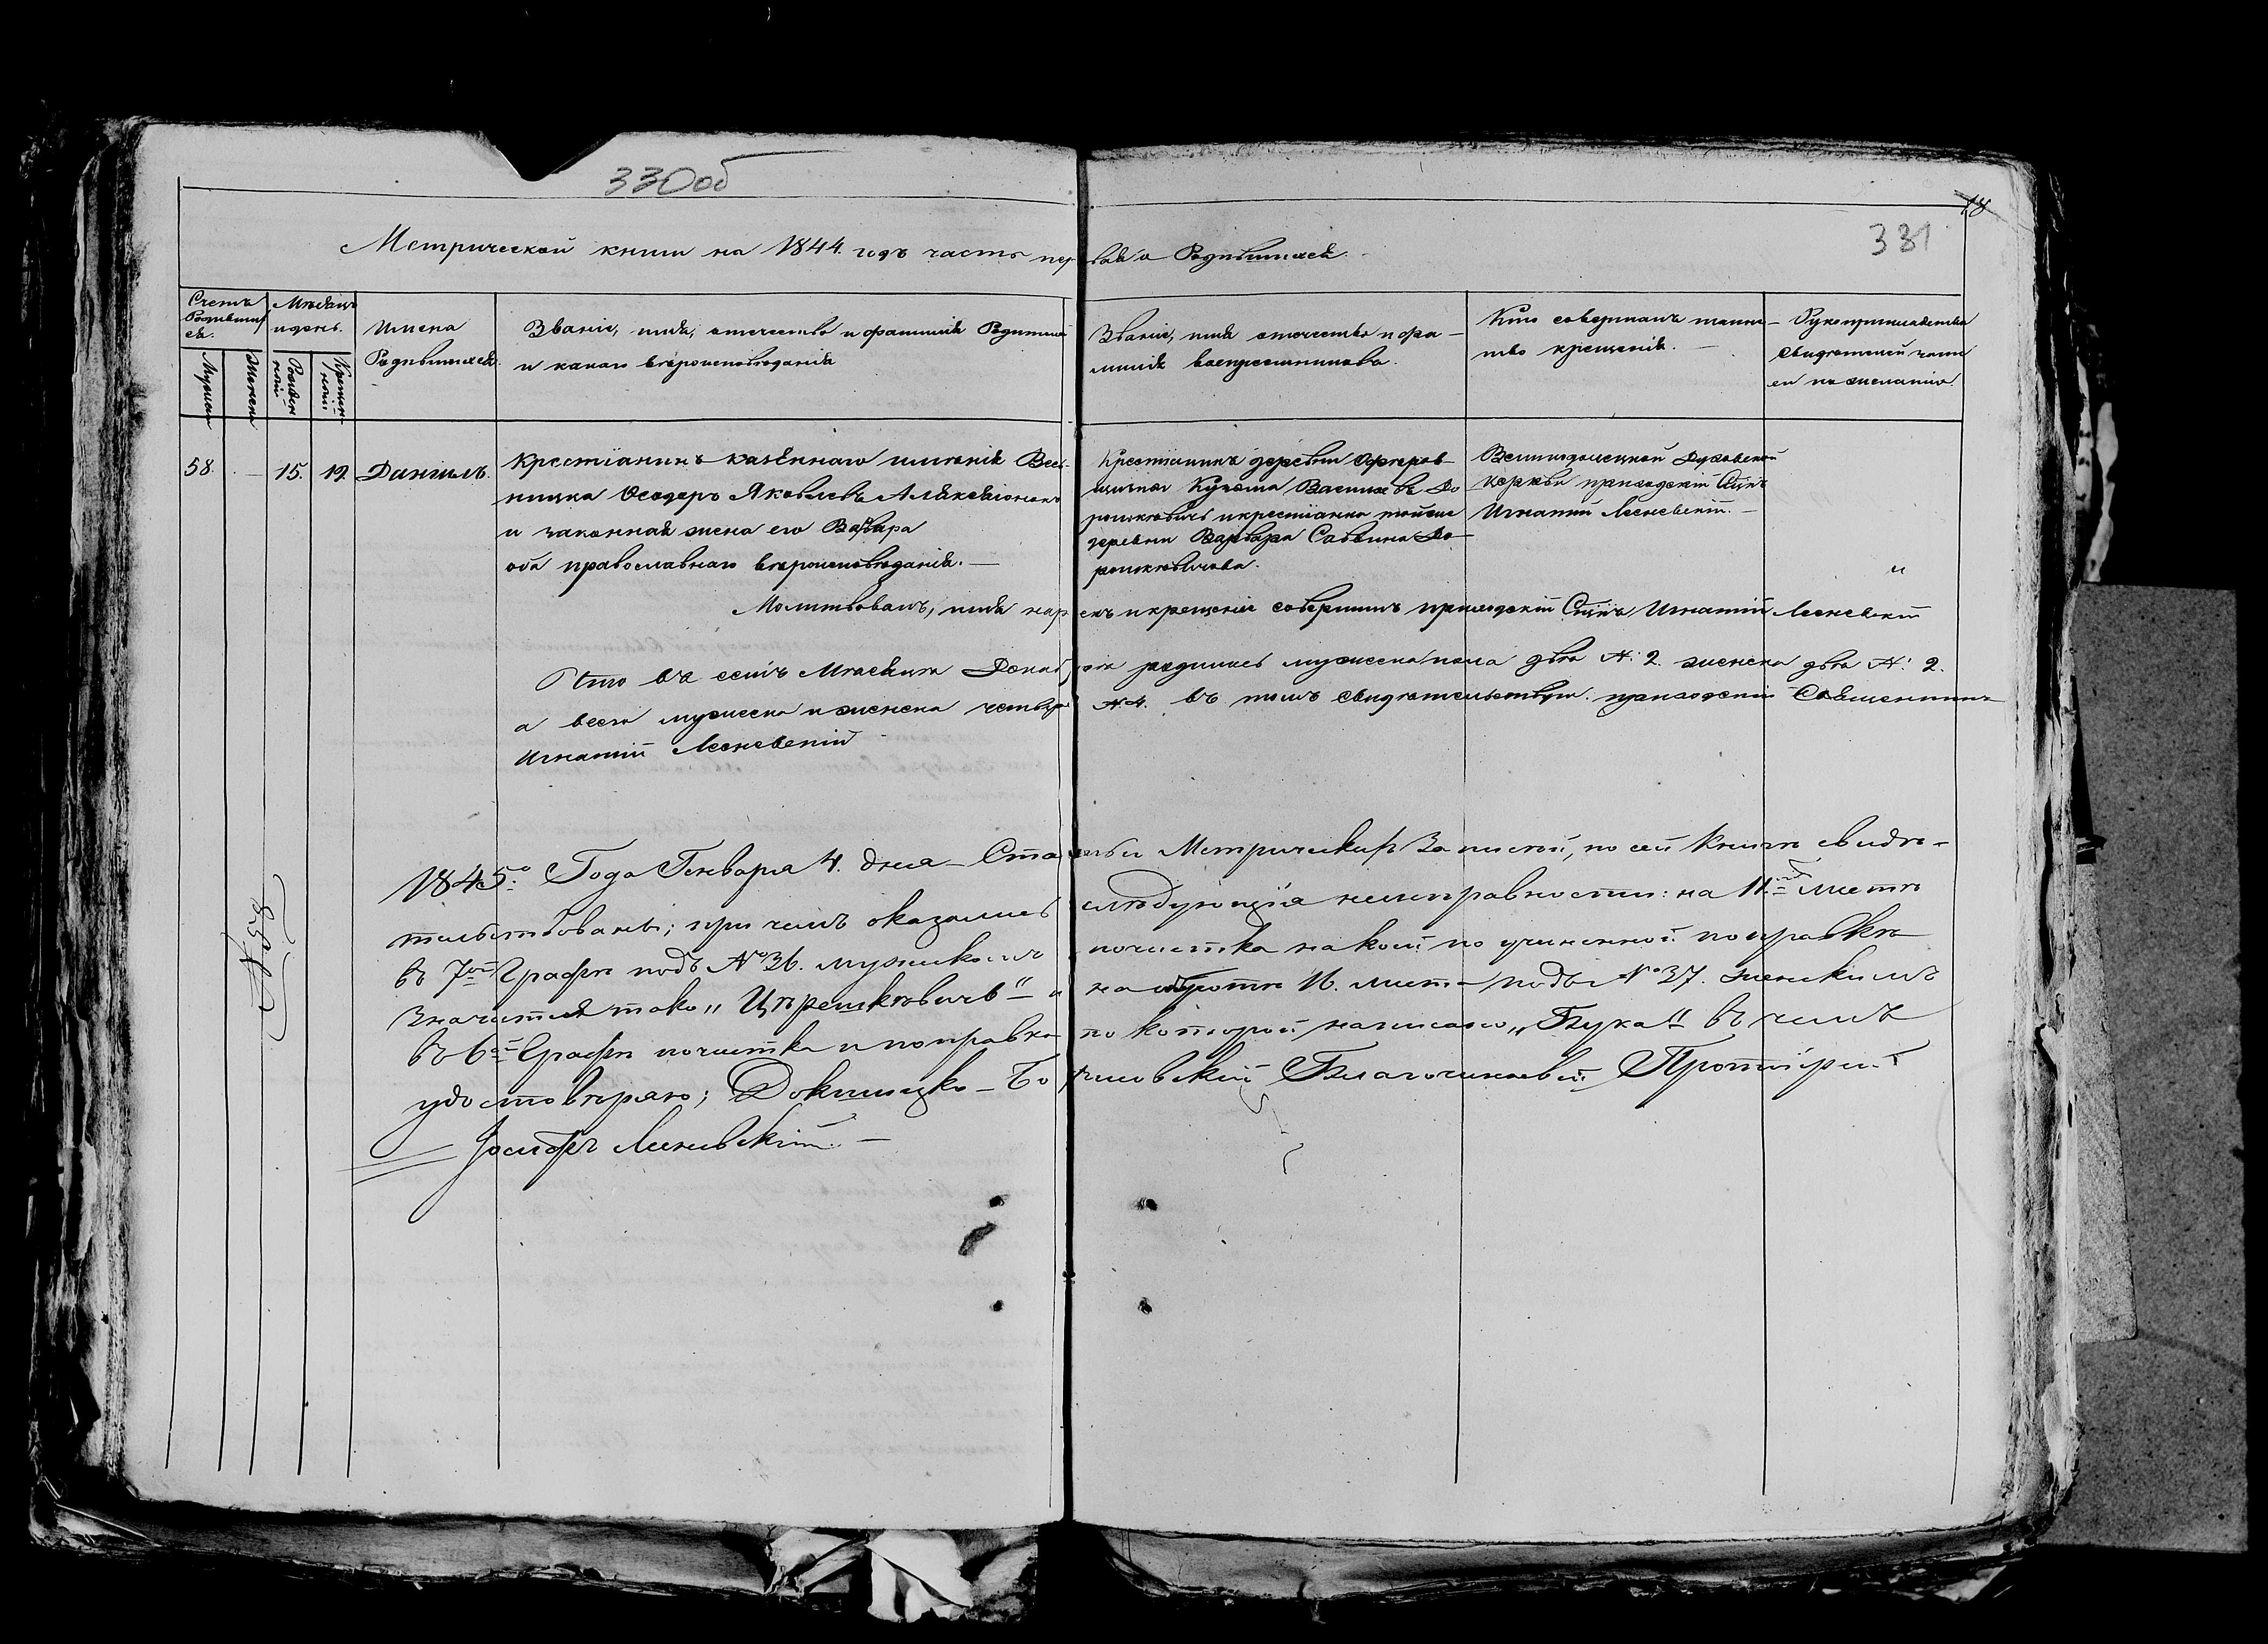 330об
18
331
Метрической книги на 1844. годъ часть первая о Родившихся.
Счетъ Родившихся.
Мужеска
Женска
Мѣсяцъ и день.
Рожденій
Крещеній
Имена Родившихся.
Званіе, имя, отечество и фамилія Родителей
и какого вѣроисповѣданія
Званіе, имя отечество и фа-
милія воспріемниковъ.
Кто совершалъ таин-
ство крещенія.
Рукоприкладство
свидѣтелей записи
по желанію.
58. — 15. 19. Даніилъ.
Крестіянинъ казеннаго имѣнія
Ѳеодоръ Яковлевъ
и законная жена его Варвара
оба православнаго вѣроисповѣданія. —
Крестіянинъ деревни
Василіевъ До
рошкевичъ и крестіянка тойже
деревни Варвара Саввина До-
рошкевичова.
Великодолецкой Духовской
церкви приходскій Сщнкъ
Игнатій Лесневскій. —
Молитвовалъ, имя нарекъ и крещеніе совершилъ приходскій Сщнкъ Игнатій Лесневскій
Что въ семъ Мѣсяцѣ Декабрѣ родились мужеска пола два №. 2. женска два №. 2.
а всего мужеска и женска четыре №. 4. въ томъ свидѣтельствую. приходскій Священникъ
Игнатій Лесневскій
1845го Года Генваря 4. дня — Статьи Метрическихъ Записей, по сей Книгѣ свидѣ-
тельствованы; при чемъ оказались слѣдующія неисправности: на 11мъ листѣ
въ 7ой Графѣ подъ №36. мужскимъ почистка на коей по учиненной поправкѣ
значится тако „Цѣрешкевичъ“ — и на оборотѣ 16. листа подъ №37. женскимъ
въ 6ой Графѣ почистка и поправка по которой написано „Бука“ въ чемъ
удостовѣряю; Докшицко-Борисовскій Благочинный Протоіерей
Іосифъ Лисневскій. —
№ 58